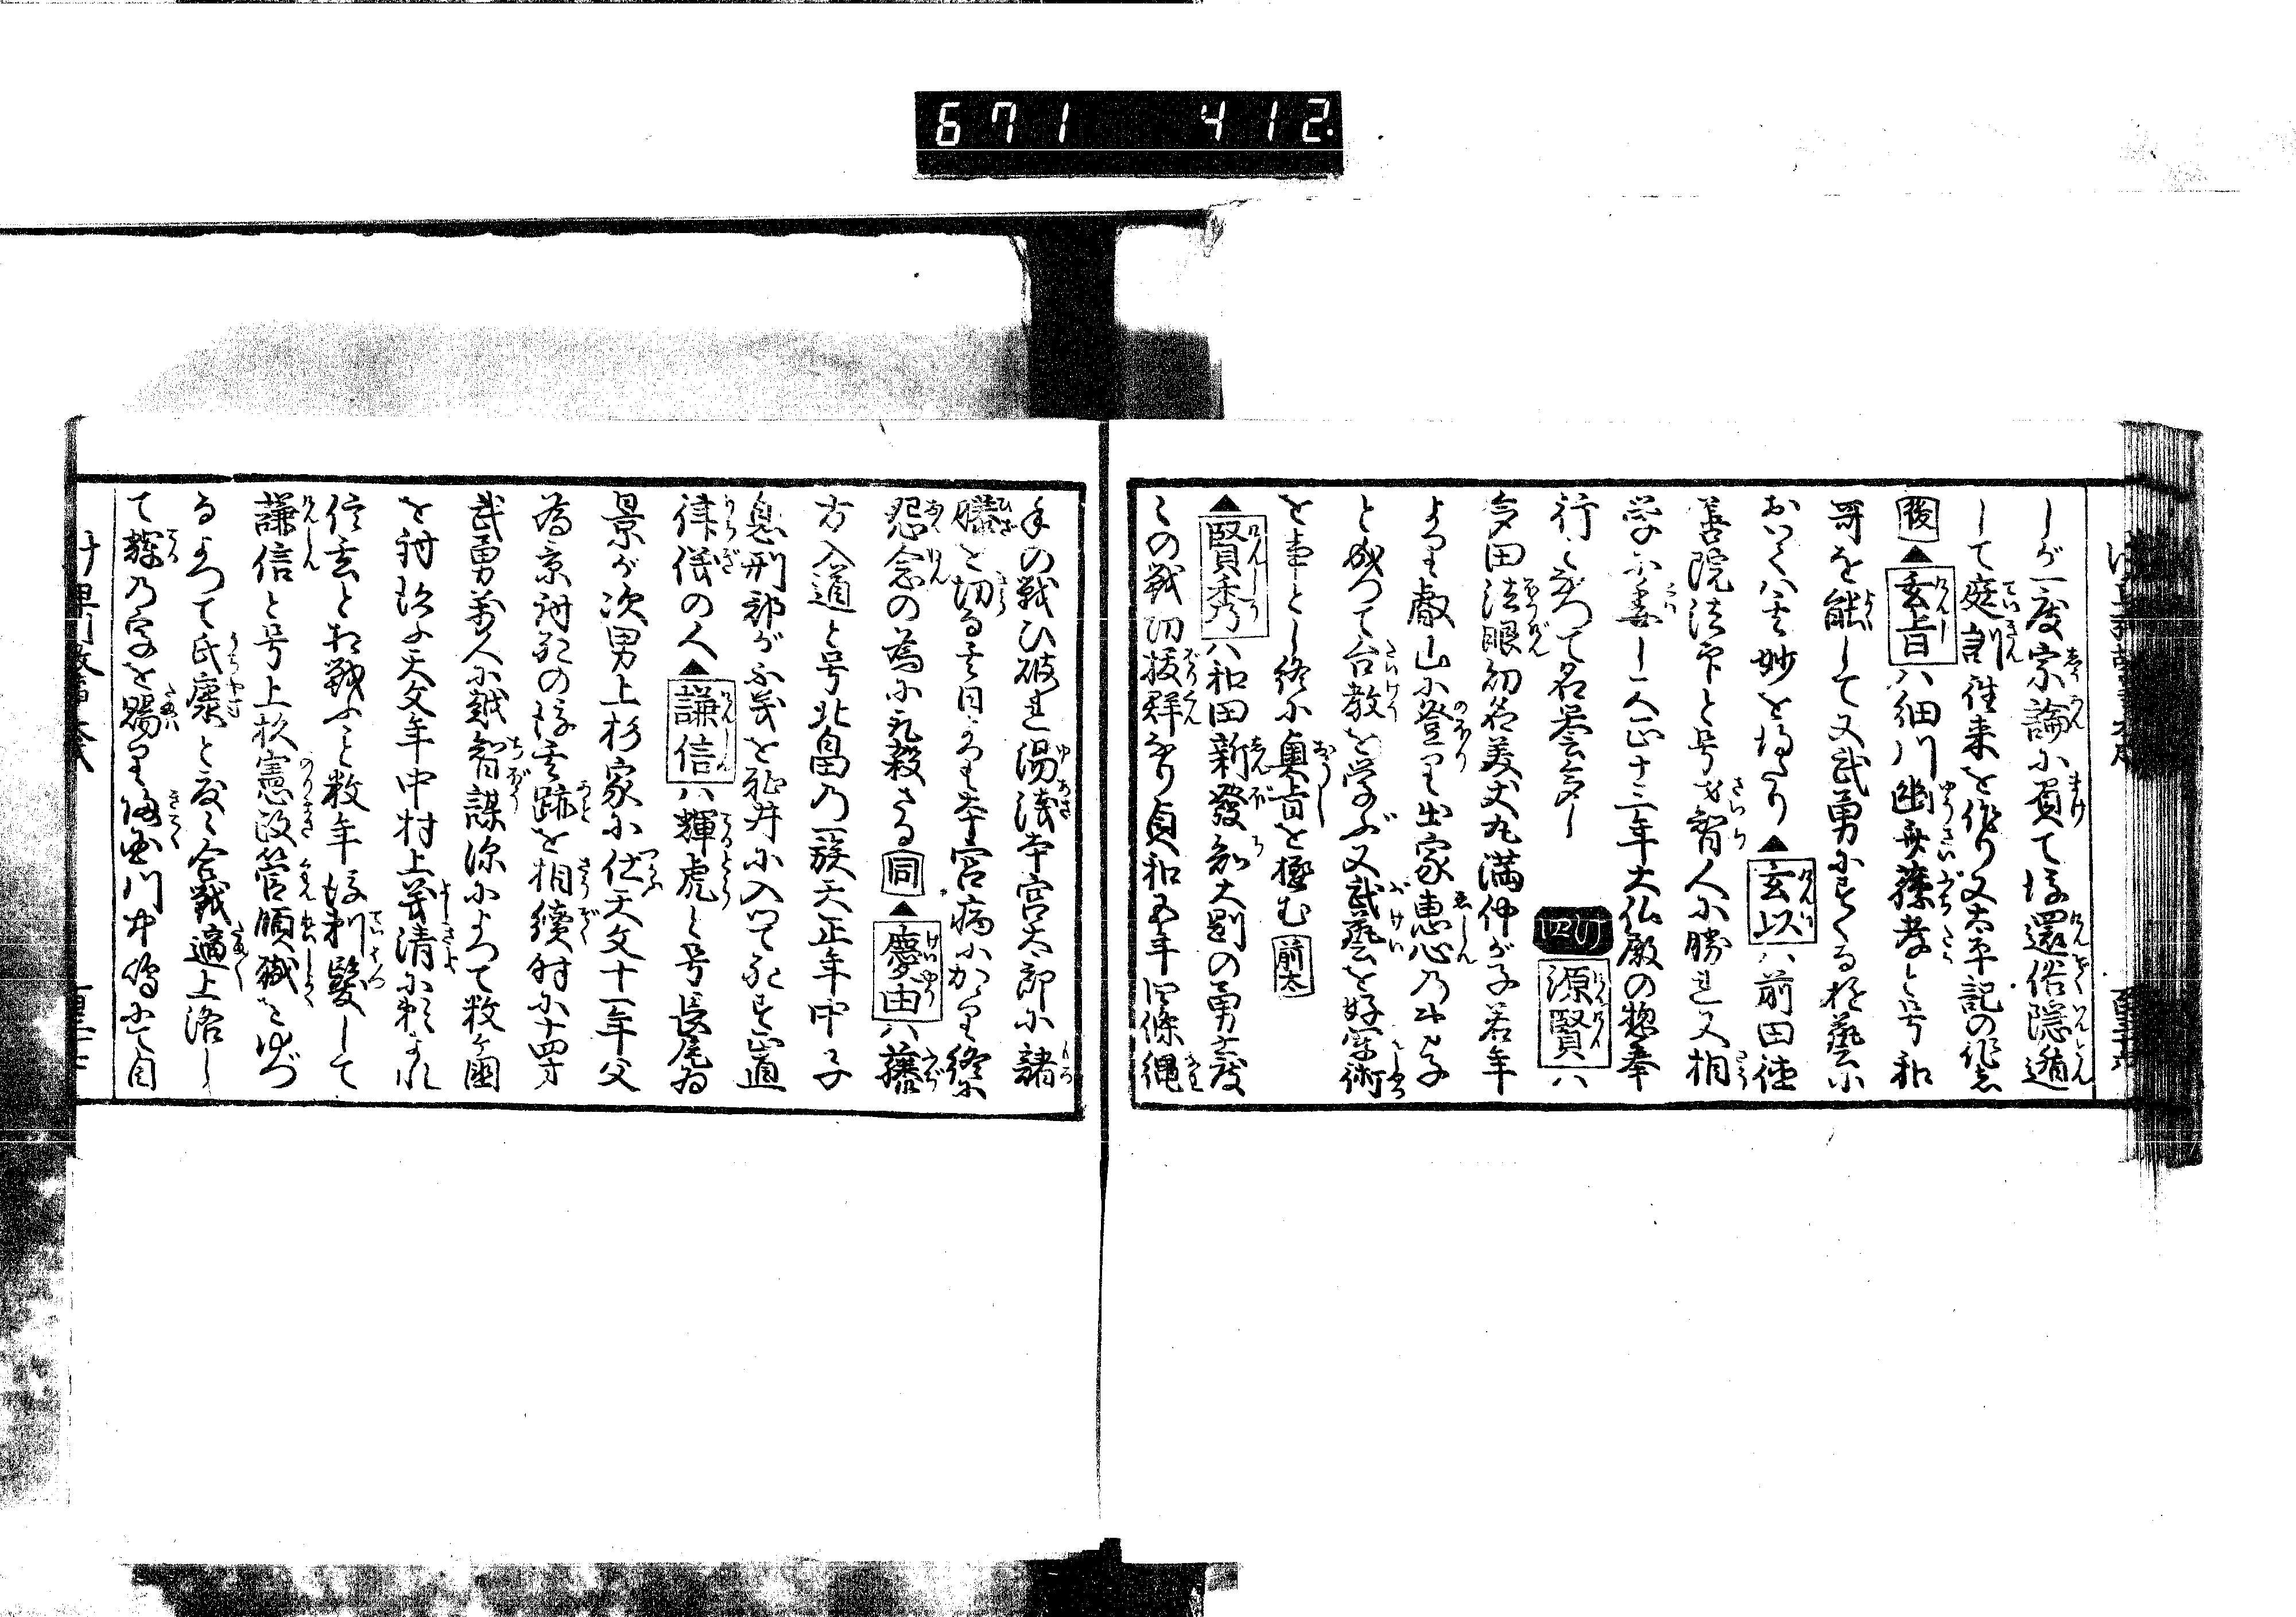 671 412.
しが一度宗論に負て後還俗隠遁
して庭訓往来を作り又太平記の作者
後▲玄旨ハ細川幽斎藤孝と号和
哥を能して又武勇にすぐる極藝に
おいてハ其妙を得たり▲玄以ハ前田徳
善院法印と号す智人に勝れ又相
学に委し天正十三年大仏殿の惣奉
行となつて名誉多し 源賢ハ
多田法眼幼名美丈丸満仲が子若年
より叡山に登り出家恵心の弟子
と成つて台教を学ぶ又武藝を好軍術
を事とし終に奥旨を極む前太
▲賢秀ハ和田新發知大剛の勇士度
々の戦功抜群なり貞和五年四條縄
手の戦ひ破れ湯浅本宮太郎に諸
膝を切る其日より本宮病にかゝり終に
怨念の為に死殺さる同▲慶由ハ藤
方入道と号北畠乃一族天正年中子
息刑部が不義を
律儀の人▲謙信ハ輝虎と号長尾為
景が次男上杉家に仕天文十一年父
為景討死の後其跡を相續時に十四才
武勇万人に越智謀深によつて数ヶ国
を討治む天文年中村上義清に頼まれ
信玄と相戦ふこと数年後剃髪して
謙信と号上杉憲政管領職をゆづ
るよつて氏康と度々合戦適上洛し
て輝乃字を賜り